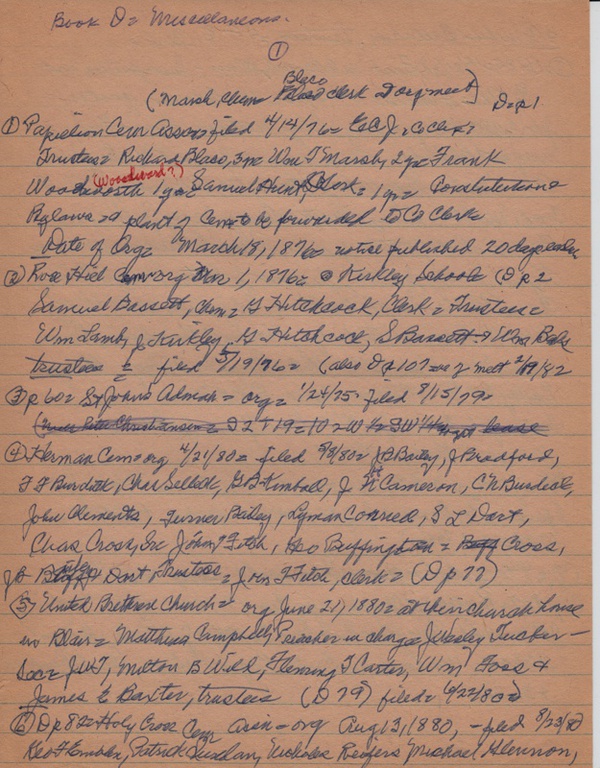 Book D = Miscellaneous.
①
Blaco
(Marsh, Chem = clerk Document) D=p1
① Papillion Cem Assoc = filed 4/14/76 = Co Clk =
Trustees = Richard Blaco, 3 yr = Wm T Marsh, 2 yr = Frank
(Woodward?)
Woodworth 1 yr = Samuel Hunt, Clerk = 1 yr = Constitution =
Bylaws = a plant of Cem to be forwarded to Co Clerk
Date of Org = March 18, 1876 = notice published 20 days
② Rose Hill Cem = org Mar 1, 1876 = @ Kirkley School = (D p 2
Samuel Bassett, Chm = G Hitchcock, Clerk = Trustees =
Wm Lamb, J Kirkley, G Hitchcock, S Bassett + Wm
trustees = filed 5/19/76 = (also D p 107 = of meet 2/19/82
③ p 60 = St Johns = org = 1/24/75 = filed 8/15/79 =
Christiansen = 9 2 T 19 = 10 = W ½ SW ¼ lease
④ Herman Cem = org 4/21/80 = filed 5/8/80 = J B Bailey, J Bradford,
F F Burdett, Chas Selleck, G B Kimball, J Cameron, C N Burdett,
John Clements, Turner Bailey, Lyman Conred, S L Dart,
Chas Cross, Sr John T Fitch, Geo Buffington = Cross,
J B Dart Trustees = John T Fitch, clerk = (D p 77)
⑤ United Brethren Church = org June 21, 1880 = at their church house
in Blair = Matthew Campbell, Preacher in charge = J Wesley Tucker —
Sec = J W T, Milton B Wild, Fleming T Carter, Wm Foss +
James E Baxter, trustees (D 79) filed = 6/22/80
⑥ D p 82 = Holy Cross Cem Assn = org Aug 13, 1880, - filed 8/23/80
Patrick Quinlan, Nicholas Michael Glennon,